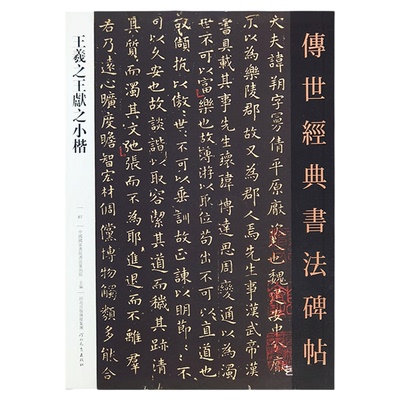 傳世經典書法碑帖
大夫諱朔字曼倩平原厭次人也魏建安中分厭
次以為樂陵郡故又為郡人焉先生事漢武帝漢
書具載其事先生瓌瑋博達思周變通以為濁
世不可以富樂也故薄游以取位苟出不可以直道也
故頡頏以傲世〻不可以垂訓故正諫以明節〻不
可以久安也故談諧以取容潔其道而穢其跡清
其質而濁其文弛張而不為耶進退而不離群
若乃遠心曠度贍智宏材倜儻博物觸類多能合
王羲之王獻之小楷